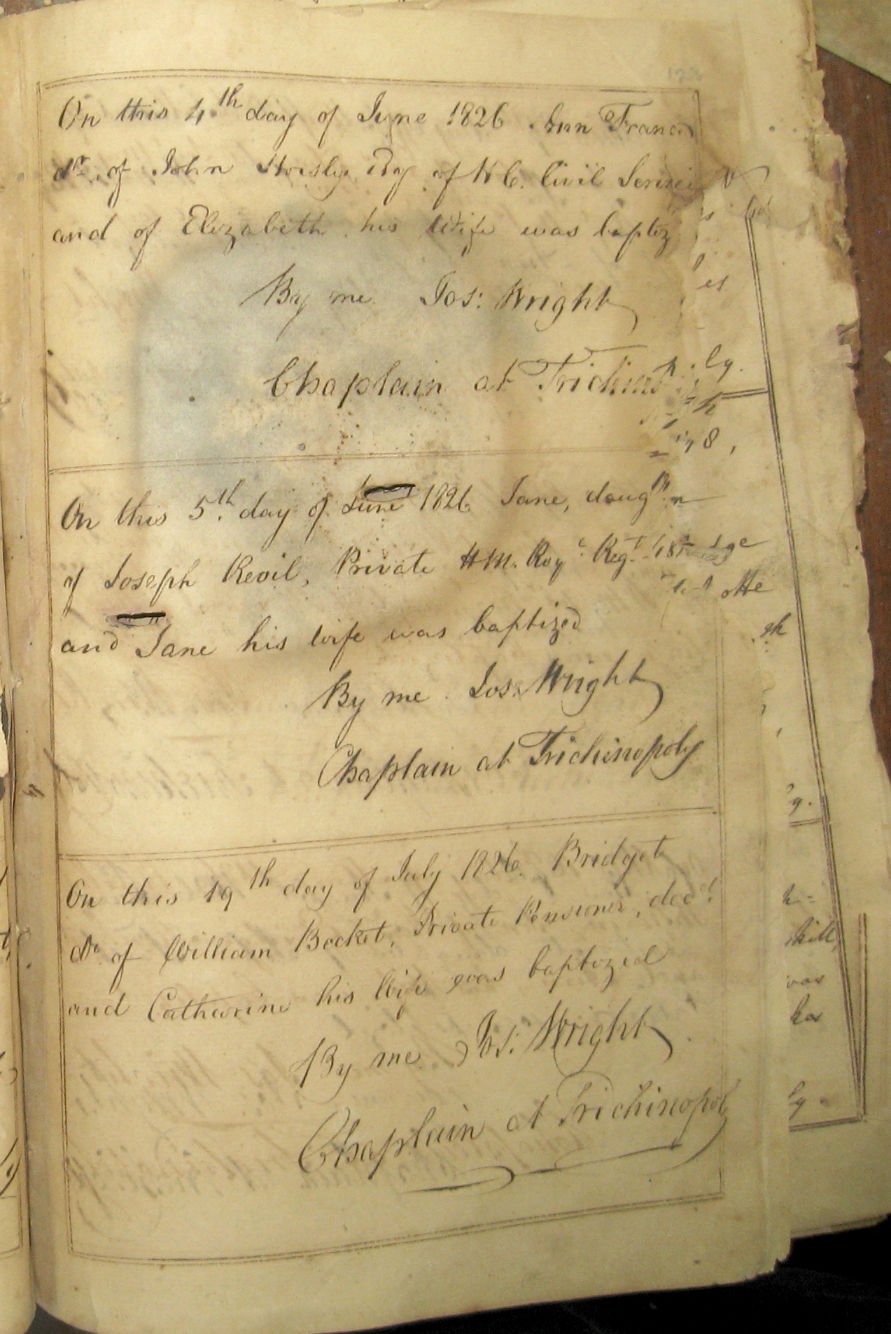 On this 4th day of June 1826 Ann Franc
dr. of John Horsly Esq of H C. Civil Servi
and of Elizabeth his Wife was baptiz
By me Jos: Wright
Chaplain at Trichin
On this 5th day of June 1826 Jane, daughr
of Joseph Revil, Private H.M. Roy. Regt
and Jane his Wife was baptized
By me Jos: Wright
Chaplain at Trichinopoly
On this 19th day of July 1826. Bridget
dr. of William Becket, Private Pensioner, decd.
and Catharine his Wife was baptized
By me Jos: Wright
Chaplain at Trichinopol